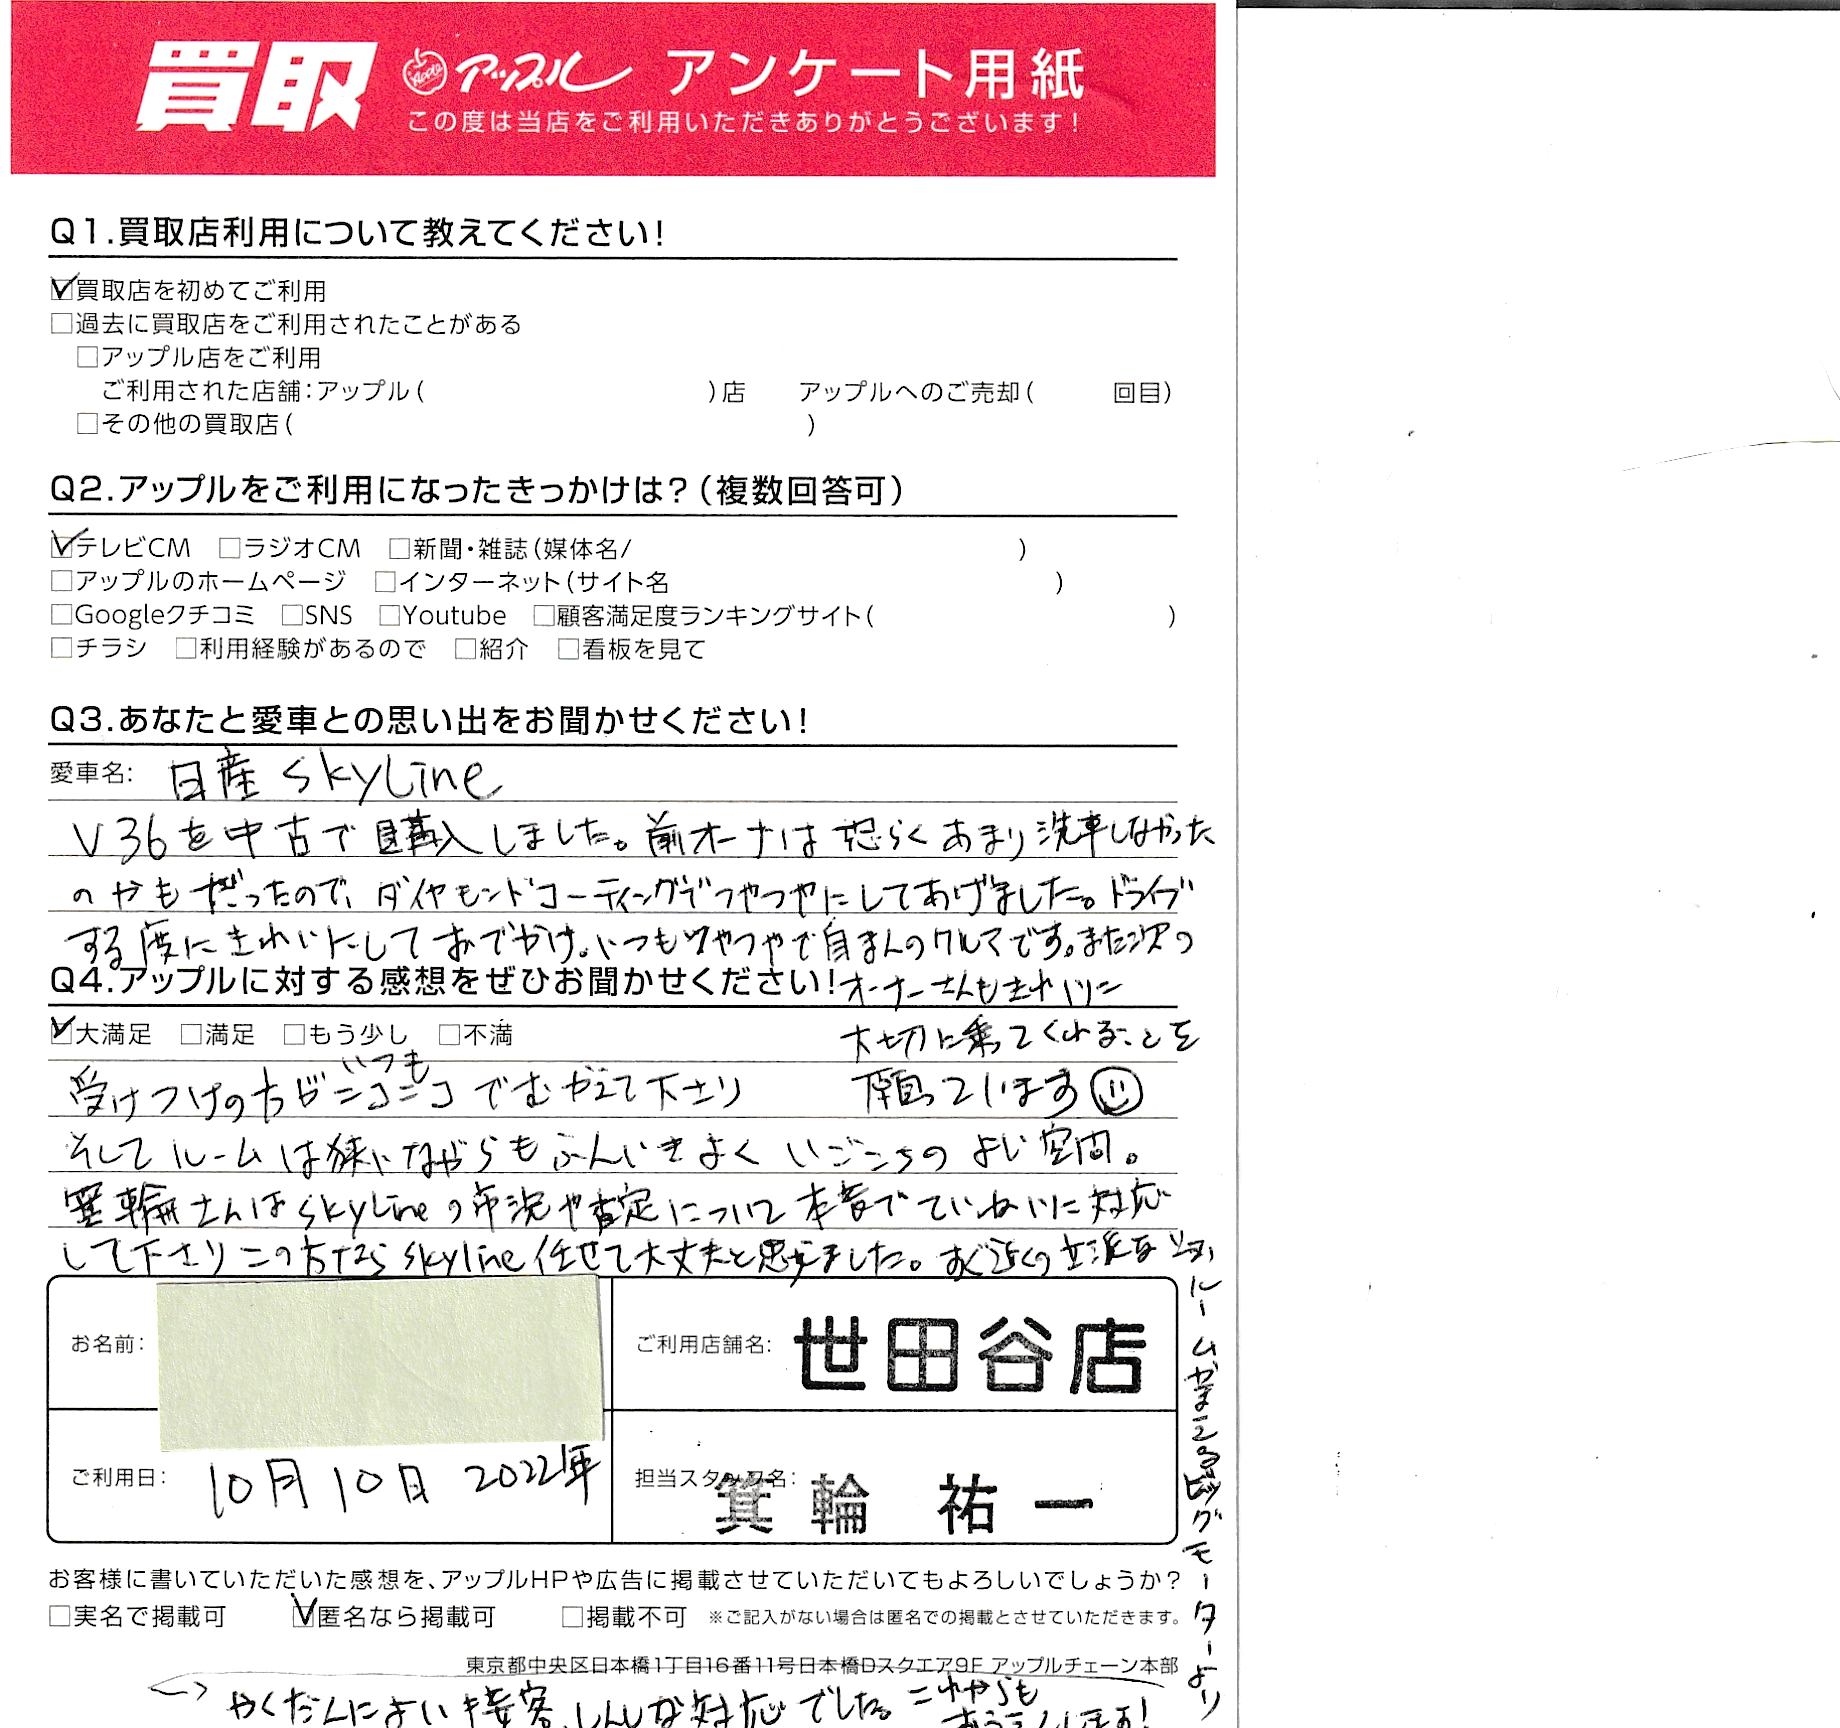 買取 アップル アンケート用紙
この度は当店をご利用いただきありがとうございます!
Q1.買取店利用について教えてください!
買取店を初めてご利用
□過去に買取店をご利用されたことがある
□アップル店をご利用
ご利用された店舗:アップル( )店 アップルへのご売却( 回目)
□その他の買取店( )
Q2.アップルをご利用になったきっかけは?(複数回答可)
テレビCM □ラジオCM □新聞・雑誌(媒体名/ )
□アップルのホームページ □インターネット(サイト名 )
□Googleクチコミ □SNS □Youtube □顧客満足度ランキングサイト( )
□チラシ □利用経験があるので □紹介 □看板を見て
Q3.あなたと愛車との思い出をお聞かせください!
愛車名: 日産 skyline
V36を中古で購入しました。前オーナは恐らくあまり洗車しなかった
のかもだったので、ダイヤモンドコーティングでつやつやにしてあげました。ドライブ
する度にきれいにしておでかけ。いつもつやつやで自まんのクルマです。また次の
オーナーさんもきれいに
大切に乗ってくれることを
願っています
Q4.アップルに対する感想をぜひお聞かせください!
大満足 □満足 □もう少し □不満
受けつけの方がいつもニコニコでむかえて下さり
そしてルームは狭いながらもふんいきよくいごこちのよい空間。
箕輪さんはskylineの市況や査定について本音でていねいに対応
して下さりこの方ならskyline任せて大丈夫と思えました。すぐ近くの立派な
ルームがまえるビッグモーターより
やくだんによい接客、しんしな対応でした。これからも
おうえんします!
お名前:
ご利用店舗名: 世田谷店
ご利用日: 10月10日 2022年
担当スタッフ名: 箕輪 祐一
お客様に書いていただいた感想を、アップルHPや広告に掲載させていただいてもよろしいでしょうか?
□実名で掲載可 匿名なら掲載可 □掲載不可 ※ご記入がない場合は匿名での掲載とさせていただきます。
東京都中央区日本橋1丁目16番11号日本橋Dスクエア9F アップルチェーン本部